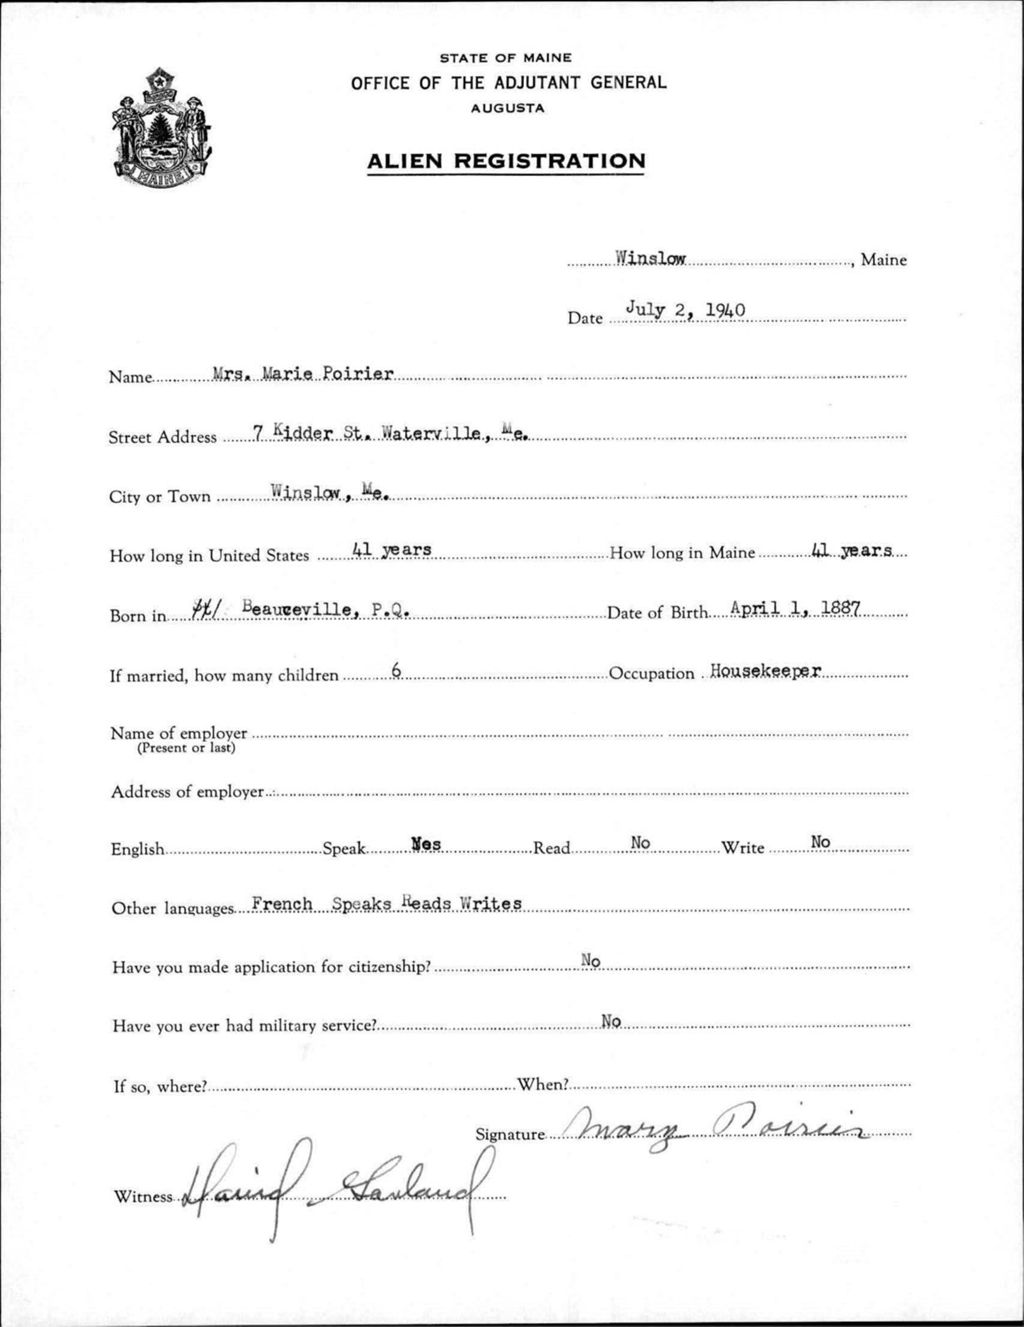 STATE OF MAINE
OFFICE OF THE ADJUTANT GENERAL
AUGUSTA
ALIEN REGISTRATION
MAINE
Winslow, Maine
Date July 2, 1940
Name Mrs. Marie Poirier
Street Address 7 Kidder St. Waterville, Me.
City or Town Winslow, Me.
How long in United States 41 years How long in Maine 41 years
Born in Beauceville, P.Q. Date of Birth April 1, 1887
If married, how many children 6 Occupation Housekeeper
Name of employer
(Present or last)
Address of employer
English Speak Yes Read No Write No
Other languages French Speaks Reads Writes
Have you made application for citizenship? No
Have you ever had military service? No
If so, where? When?
Signature Mary Poirier
Witness David Garland